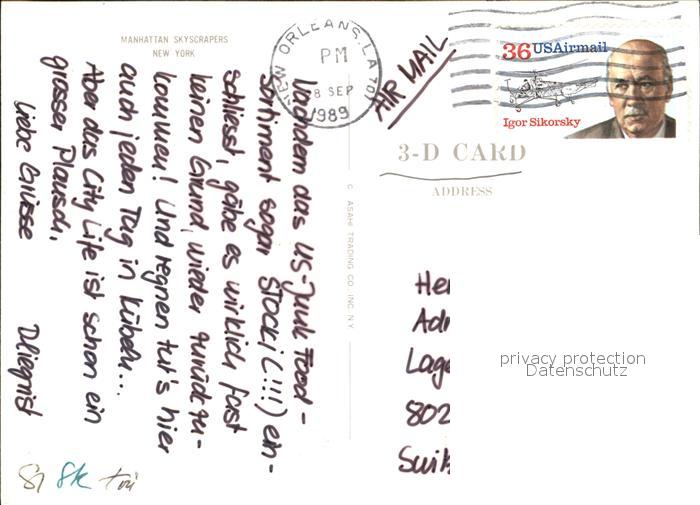 MANHATTAN SKYSCRAPERS
NEW YORK
Nachdem das US-Junk Food-
Sortiment sogar STOCKI (!!!) ein-
schliesst, gäbe es wirklich fast
keinen Grund, wieder zurückzu-
kommen! Und regnen tut's hier
auch jeden Tag in Kübeln...
Aber das City Life ist schon ein
grosser Plausch.
Liebe Grüsse
NEW ORLEANS, LA 701
PM
8 SEP
1989
AIR MAIL
36 USAirmail
Igor Sikorsky
3-D CARD
ADDRESS
© ASAHI TRADING CO. INC. N.Y.
He
Ad
Lage
802
Suik
privacy protection
Datenschutz